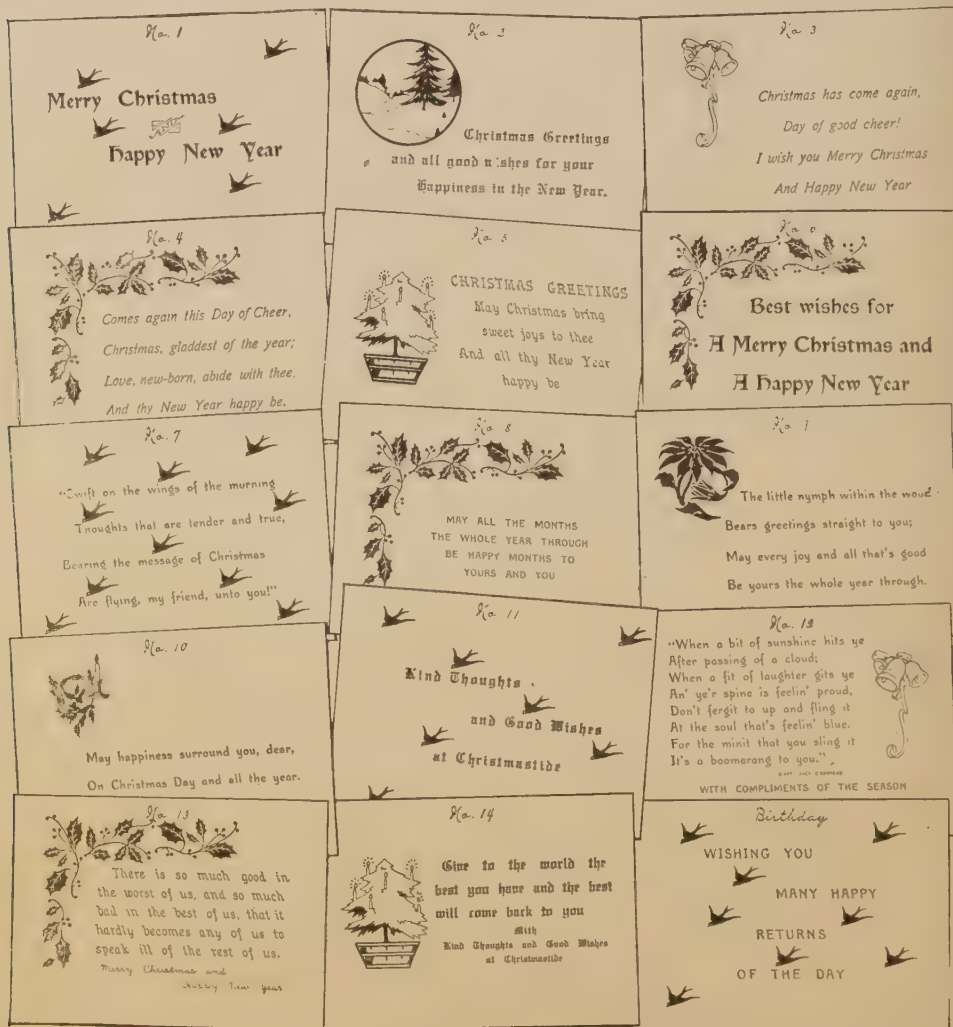 No. 1
Merry Christmas
Happy New Year
No. 2
Christmas Greetings
and all good wishes for your
Happiness in the New Year.
No. 3
Christmas has come again,
Day of good cheer!
I wish you Merry Christmas
And Happy New Year
No. 4
Comes again this Day of Cheer,
Christmas, gladdest of the year;
Love, new-born, abide with thee.
And thy New Year happy be.
No. 5
CHRISTMAS GREETINGS
May Christmas bring
sweet joys to thee
And all thy New Year
happy be
No. 6
Best wishes for
A Merry Christmas and
A Happy New Year
No. 7
"Swift on the wings of the morning
Thoughts that are tender and true,
Bearing the message of Christmas
Are flying, my friend, unto you!"
No. 8
MAY ALL THE MONTHS
THE WHOLE YEAR THROUGH
BE HAPPY MONTHS TO
YOURS AND YOU
No.
The little nymph within the wood
Bears greetings straight to you;
May every joy and all that's good
Be yours the whole year through.
No. 10
May happiness surround you, dear,
On Christmas Day and all the year.
No. 11
Kind Thoughts
and Good Wishes
at Christmastide
No. 12
"When a bit of sunshine hits ye
After passing of a cloud;
When a fit of laughter gits ye
An' ye'r spine is feelin' proud,
Don't fergit to up and fling it
At the soul that's feelin' blue.
For the minit that you sling it
It's a boomarang to you."
WITH COMPLIMENTS OF THE SEASON
No. 13
There is so much good in
the worst of us, and so much
bad in the best of us, that it
hardly becomes any of us to
speak ill of the rest of us.
Merry Christmas and
Happy New Year
No. 14
Give to the world the
best you have and the best
will come back to you
With
Kind Thoughts and Good Wishes
at Christmastide
Birthday
WISHING YOU
MANY HAPPY
RETURNS
OF THE DAY